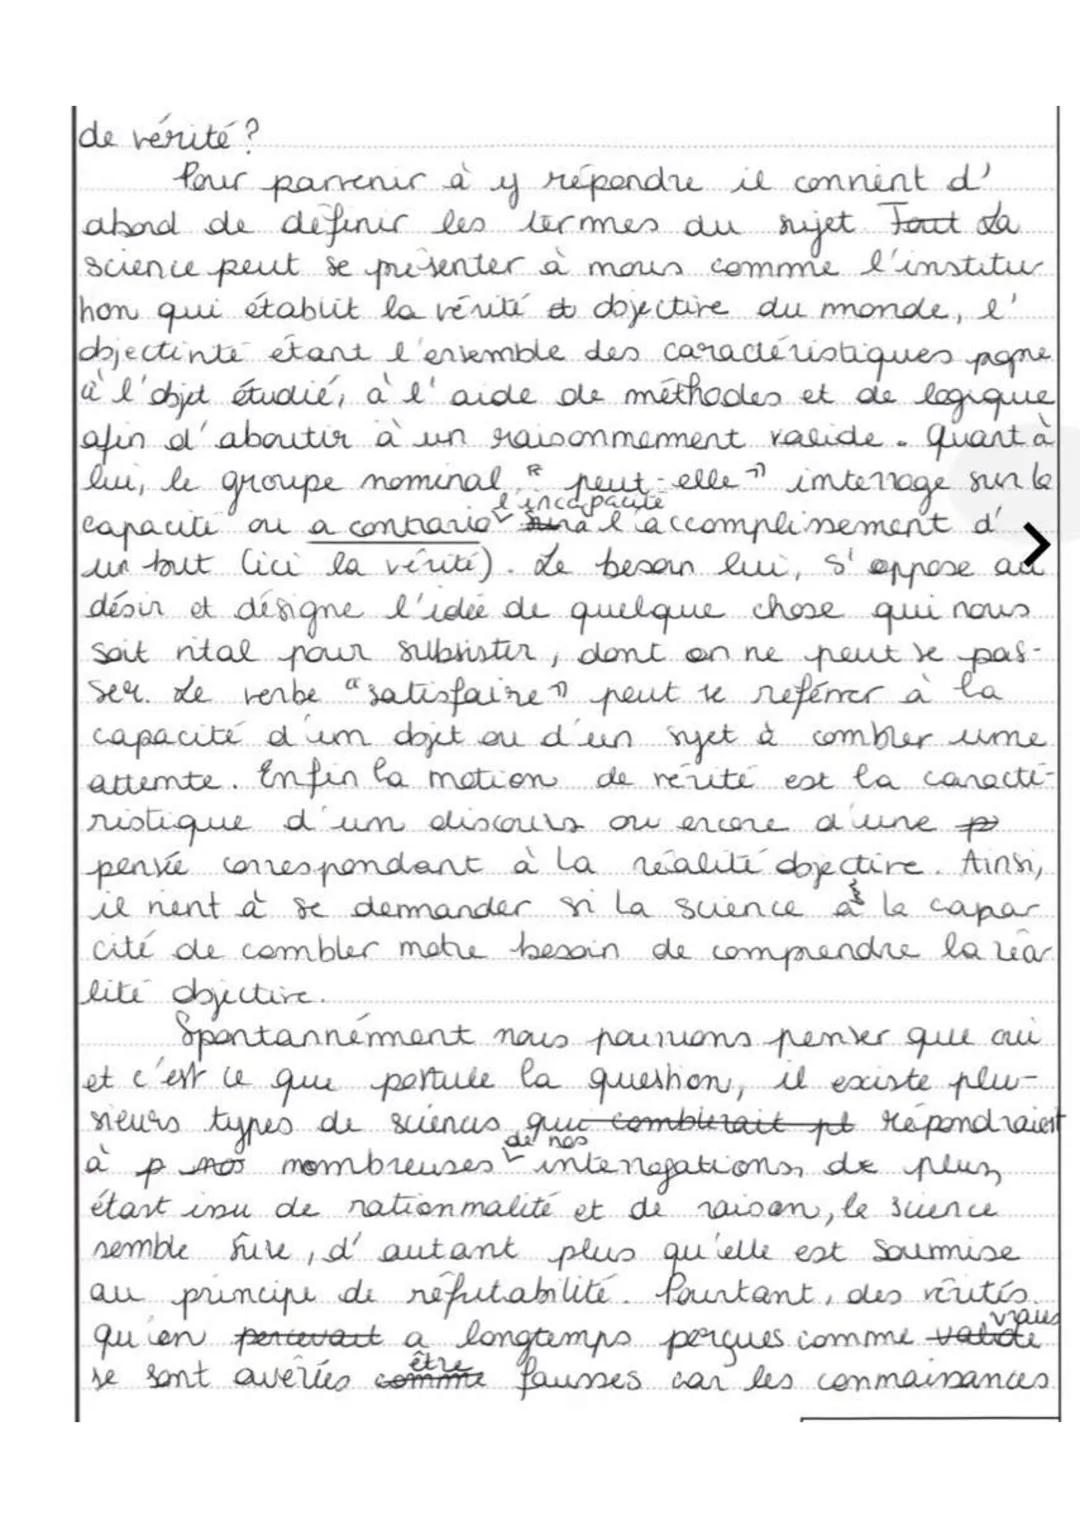 de vérité ?
Pour parvenir à y répondre il convient d'
abord de définir les termes du sujet. Tout La
science peut se présenter à nous comme l'institu
tion qui établit la vérité et objective du monde, l'
objectivité étant l'ensemble des caractéristiques propre
à l'objet étudié, à l'aide de méthodes et de logique
afin d'aboutir à un raisonnement valide. Quant à
lui, le groupe nominal " peut-elle " interroge sur la
l'incapacité
capacité ou a contrario à l'accomplissement d'
un tout (ici la vérité). Le besoin lui, s'oppose au
désir et désigne l'idée de quelque chose qui nous
soit vital pour subsister, dont on ne peut se pas-
ser. Le verbe "satisfaire" peut se référer à la
capacité d'un objet ou d'un sujet à combler une
attente. Enfin la notion de vérité est la caracté-
ristique d'un discours ou encore d'une p
pensée correspondant à la réalité objective. Ainsi,
il vient à se demander si la science a la capa
cité de combler notre besoin de comprendre la réa
lité objective.
Spontannément nous pourrions penser que oui
et c'est ce que postule la question, il existe plu-
sieurs types de sciences qui comblerait pt répondraient
de nos
à p nos nombreuses interrogations, de plus,
étant issu de rationnalité et de raison, la science
semble sure, d'autant plus qu'elle est soumise
au principe de réfutabilité. Pourtant, des vérités
vraies
qu'on percevait a longtemps perçues comme valide
être
se sont avérées comme fausses car les connaissances